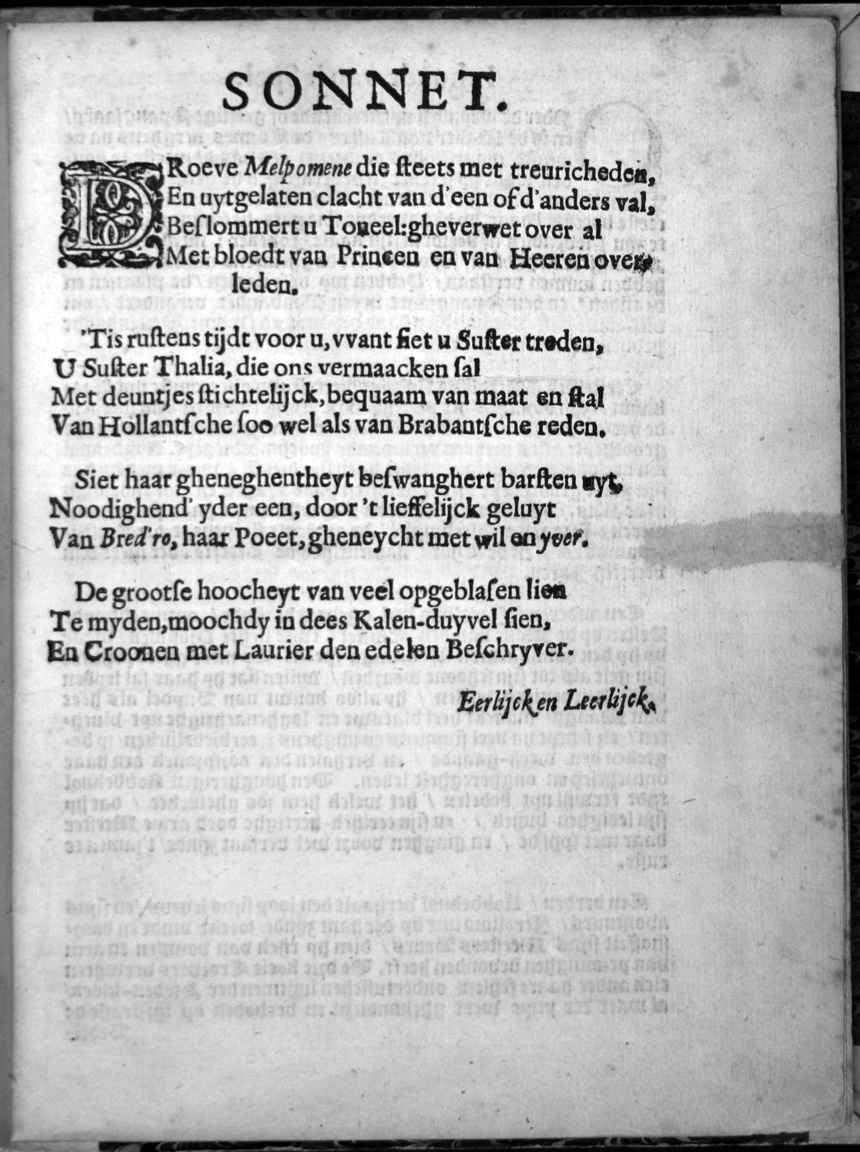 SONNET.
DRoeve Melpomene die ſteets met treuricheden,
En uytgelaten clacht van d'een of d'anders val,
Beſlommert u Toneel: gheverwet over al
Met bloedt van Princen en van Heeren over
leden.
'Tis ruſtens tijdt voor u, vvant ſiet u Suſter treden,
U Suſter Thalia, die ons vermaacken ſal
Met deuntjes ſtichtelijck, bequaam van maat en ſtal
Van Hollantſche ſoo wel als van Brabantſche reden.
Siet haar gheneghentheyt beſwanghert barſten uyt,
Noodighend' yder een, door 't lieffelijck geluyt
Van Bred'ro, haar Poeet, gheneycht met wil en yver.
De grootſe hoocheyt van veel opgeblaſen lien
Te myden, moochdy in dees Kalen-duyvel ſien,
En Croonen met Laurier den edelen Beſchryver.
Eerlijck en Leerlijck.